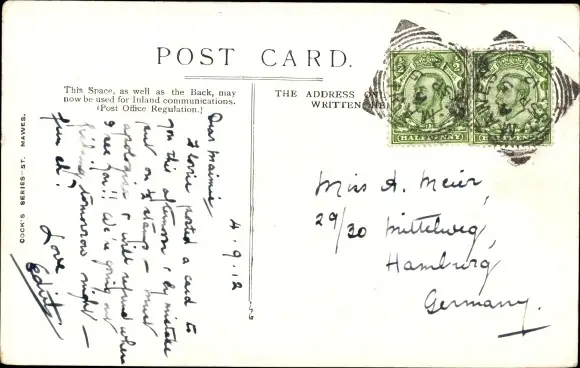 POST CARD.
This Space, as well as the Back, may
now be used for Inland communications.
(Post Office Regulation.)
THE ADDRESS ON
WRITTEN HE
COCK'S SERIES—ST. MAWES.
HALFPENNY
HALFPENNY
4.9.12
Dear Maimie,
Florrie posted a card to
you this afternoon & by mistake
put on ½ stamp — must
apologise & will refund when
I see you!! We're going out
fishing tomorrow night —
fun eh?
Love
Edith.
Miss A. Meier,
29/30 Mittelweg,
Hamburg
Germany.